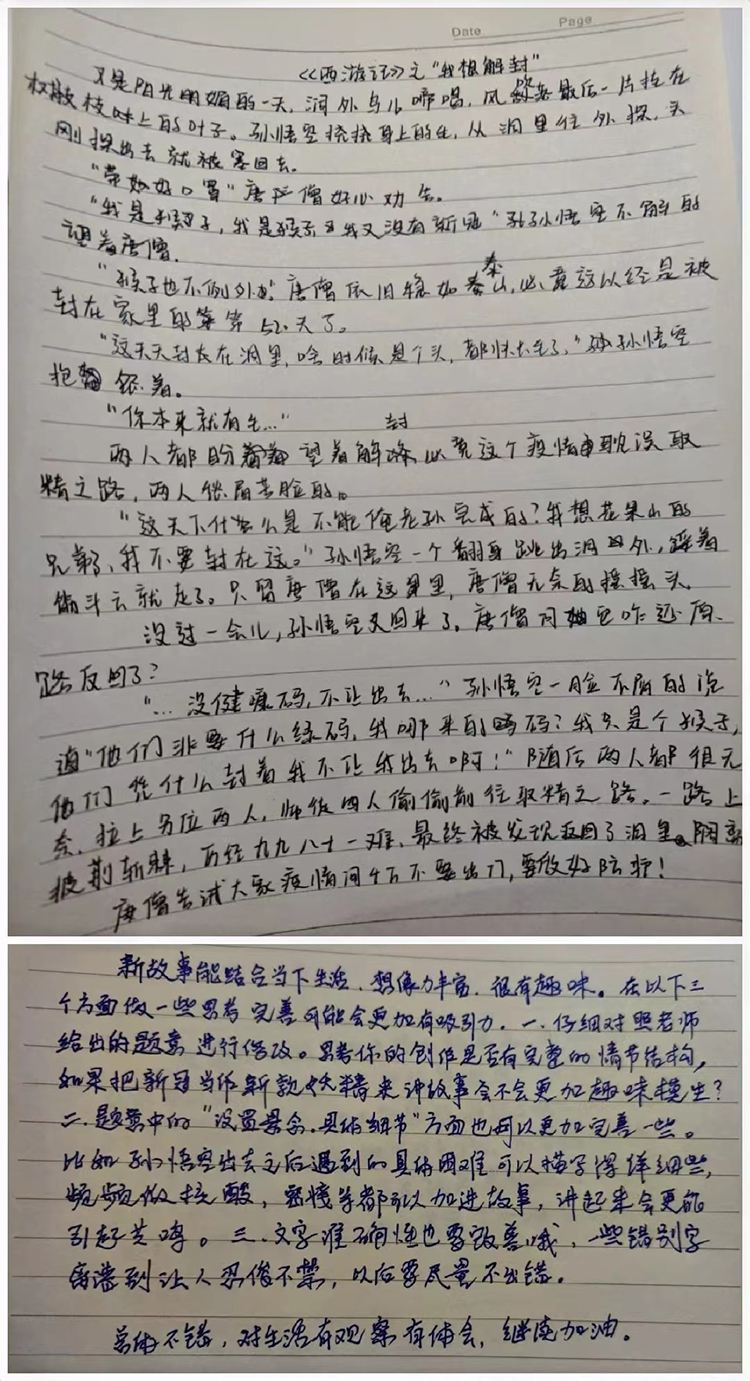 Date Page
《西游记》之“我想解封”
又是阳光明媚的一天,洞外鸟儿啼唱,风
最后一片挂在
枝上的叶子。孙悟空挠挠身上的毛,从洞里往外探,头
刚探出去就被塞回去。
“带好口罩”唐僧好心劝告。
“我是猴子,我是猴子我又没有新冠”孙悟空不解的
望着唐僧。
“猴子也不例外。”唐僧依旧稳如泰山,必竟这以经是被
封在家里的第52天了。
“这天天封在洞里,啥时候是个头,都快长毛了,”孙悟空
抱怨着。
“你本来就有毛…”
两人都盼望着解封,必竟这个疫情耽误取
精之路,两人愁眉苦脸的。
“这天下什么是不能俺老孙完成的?我想花果山的
兄弟了,我不要封在这。”孙悟空一个翻身跳出洞外,踩着
筋斗云就走了。只留唐僧在这里,唐僧无奈的摇摇头
没过一会儿,孙悟空又回来了。唐僧问他咋还原
路反回了?
“…没健康码,不让出去…”孙悟空一脸不屑的说
道“他们非要什么绿码,我哪来的码?我只是个猴子,
他们凭什么封着我不让我出去啊!”随后两人都很无
奈,拉上另位两人,师徒四人偷偷前往取精之路。一路上
披荆斩棘,历经九九八十一难,最终被发现返回了洞里。
唐僧告诫大家疫情间千万不要出门,要做好防护!
新故事能结合当下生活,想像力丰富,很有趣味。在以下三
个方面做一些思考完善可能会更加有吸引力。一.仔细对照老师
给出的题意进行修改。思考你的创作是否有完整的情节结构,
如果把新冠当作新款妖精来讲故事会不会更加趣味横生?
二.题意中的“设置悬念.具体细节”方面也可以更加完善一些。
比如孙悟空出去之后遇到的具体困难可以描写得详细些,
频频做核酸,密接等都可以加进故事,讲起来会更能
引起共鸣。三.文字准确性也要改善哦,一些错别字
离谱到让人忍俊不禁,以后要尽量不出错。
总体不错,对生活有观察有体会,继续加油。